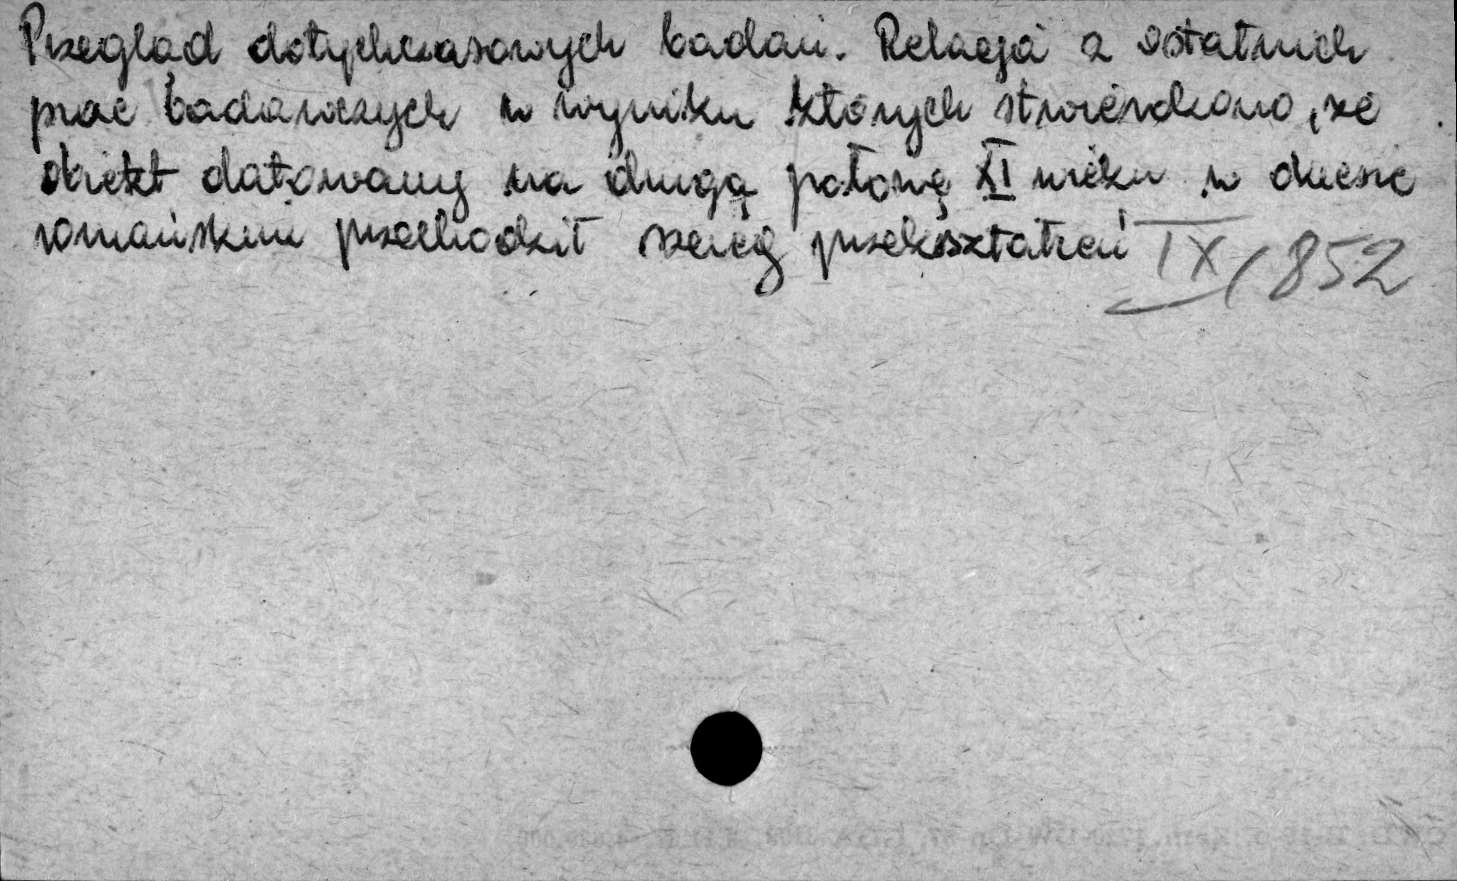 Przegląd dotychczasowych badań. Relacja z ostatnich
prac badawczych w wyniku których stwierdzono, że
obiekt datowany na drugą połowę XI wieku w okresie
romańskim przechodził szereg przekształceń IX/852